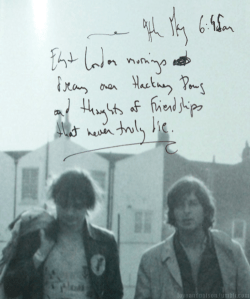 9th May 6:45am
East London mornings
Dreams over Hackney Downs
and thoughts of Friendships
that never truly die.